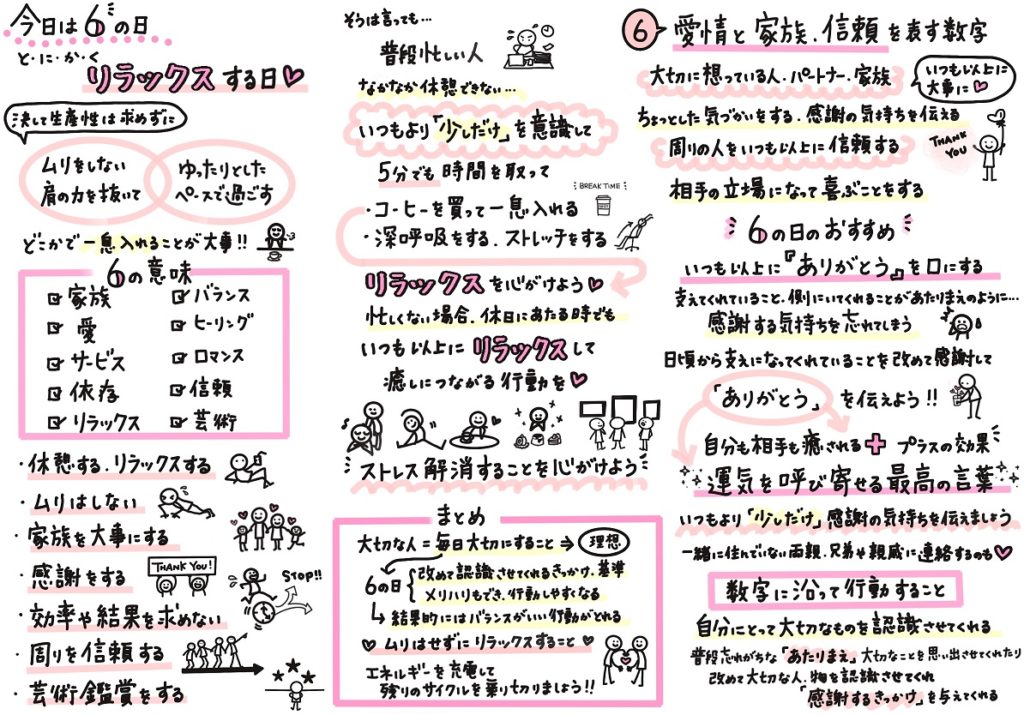 今日は6の日
と・に・か・く
リラックスする日
決して生産性は求めずに
ムリをしない
肩の力を抜いて
ゆったりとした
ペースで過ごす
どこかで一息入れることが大事!!
6の意味
家族
愛
サービス
依存
リラックス
バランス
ヒーリング
ロマンス
信頼
芸術
・休憩する．リラックスする
・ムリはしない
・家族を大事にする
・感謝をする
THANK YOU!
STOP!!
・効率や結果を求めない
・周りを信頼する
・芸術鑑賞をする
そうは言っても…
普段忙しい人
なかなか休憩できない…
いつもより「少しだけ」を意識して
5分でも時間を取って
BREAK TIME
・コーヒーを買って一息入れる
・深呼吸をする．ストレッチをする
リラックスを心がけよう
忙しくない場合．休日にあたる時でも
いつも以上にリラックスして
癒しにつながる行動を
ストレス解消することを心がけよう
まとめ
大切な人＝毎日大切にすること→理想
6の日
改めて認識させてくれるきっかけ．基準
メリハリもでき，行動しやすくなる
↳結果的にはバランスがいい行動がとれる
♡ムリはせずにリラックスすること♡
エネルギーを充電して
残りのサイクルを乗り切りましょう!!
6 愛情と家族．信頼を表す数字
大切に想っている人．パートナー．家族
いつも以上に
大事に♡
ちょっとした気づかいをする．感謝の気持ちを伝える
周りの人をいつも以上に信頼する
THANK
YOU
相手の立場になって喜ぶことをする
6の日のおすすめ
いつも以上に『ありがとう』を口にする
支えてくれていること．側にいてくれることがあたりまえのように…
感謝する気持ちを忘れてしまう
日頃から支えになってくれていることを改めて感謝して
「ありがとう」を伝えよう!!
自分も相手も癒される＋プラスの効果
運気を呼び寄せる最高の言葉
いつもより「少しだけ」感謝の気持ちを伝えましょう
一緒に住んでいない両親．兄弟や親戚に連絡するのも♡
数字に沿って行動すること
自分にとって大切なものを認識させてくれる
普段忘れがちな「あたりまえ」大切なことを思い出させてくれたり
改めて大切な人．物を認識させてくれ
「感謝するきっかけ」を与えてくれる